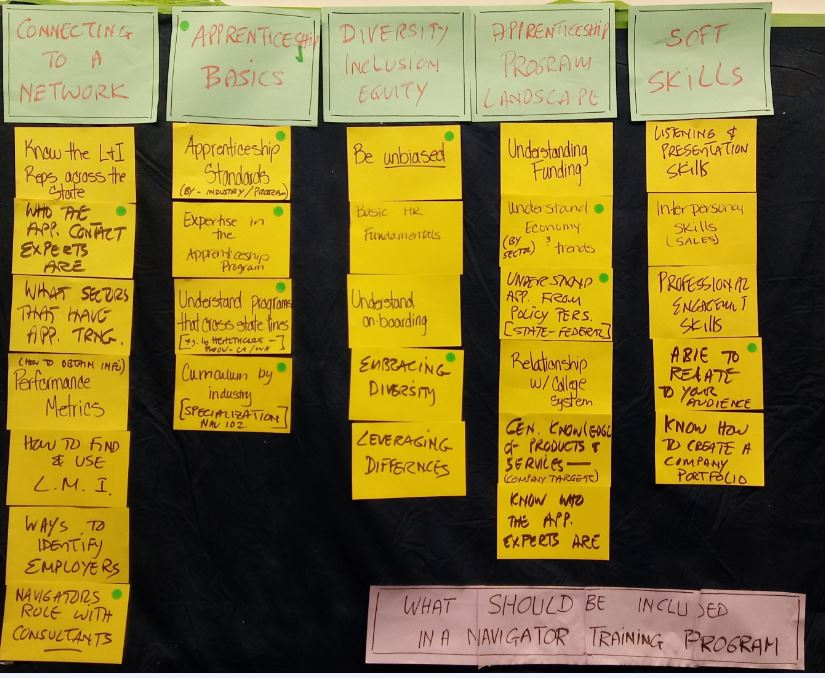 CONNECTING
TO A
NETWORK
Know the L+I
Reps across the
State
WHO THE
APP. CONTACT
EXPERTS
ARE
WHAT SECTORS
THAT HAVE
APP. TRNG.
(HOW TO OBTAIN INFO)
Performance
Metrics
HOW TO FIND
& USE
L.M.I.
WAYS TO
IDENTIFY
EMPLOYERS
NAVIGATORS
ROLE WITH
CONSULTANTS
APPRENTICESHIP
BASICS
Apprenticeship
Standards
(BY - INDUSTRY/PROGRAM)
Expertise in
the
Apprenticeship
Program
Understand programs
that cross state lines
HEALTHCARE -
CA/WA
Curriculum by
industry
[SPECIALIZATION
NAV 102]
DIVERSITY
INCLUSION
EQUITY
Be unbiased
Basic HR
Fundamentals
Understand
on-boarding
EMBRACING
DIVERSITY
LEVERAGING
DIFFERNCES
APPRENTICESHIP
PROGRAM
LANDSCAPE
Understanding
Funding
Understand
Economy
(BY SECTOR) & trends
UNDERSTAND
APP. FROM
POLICY PERS.
[STATE-FEDERAL]
Relationship
w/College
System
GEN. KNOWLEDGE
of PRODUCTS &
SERVICES —
(COMPANY TARGETS)
KNOW WHO
THE APP.
EXPERTS ARE
SOFT
SKILLS
LISTENING &
PRESENTATION
SKILLS
Interpersonal
SKILLS
(SALES)
PROFESSIONAL
ENGAGEMENT
SKILLS
ABLE TO
RELATE
TO YOUR
AUDIENCE
KNOW HOW
TO CREATE A
COMPANY
PORTFOLIO
WHAT SHOULD BE INCLUDED
IN A NAVIGATOR TRAINING PROGRAM